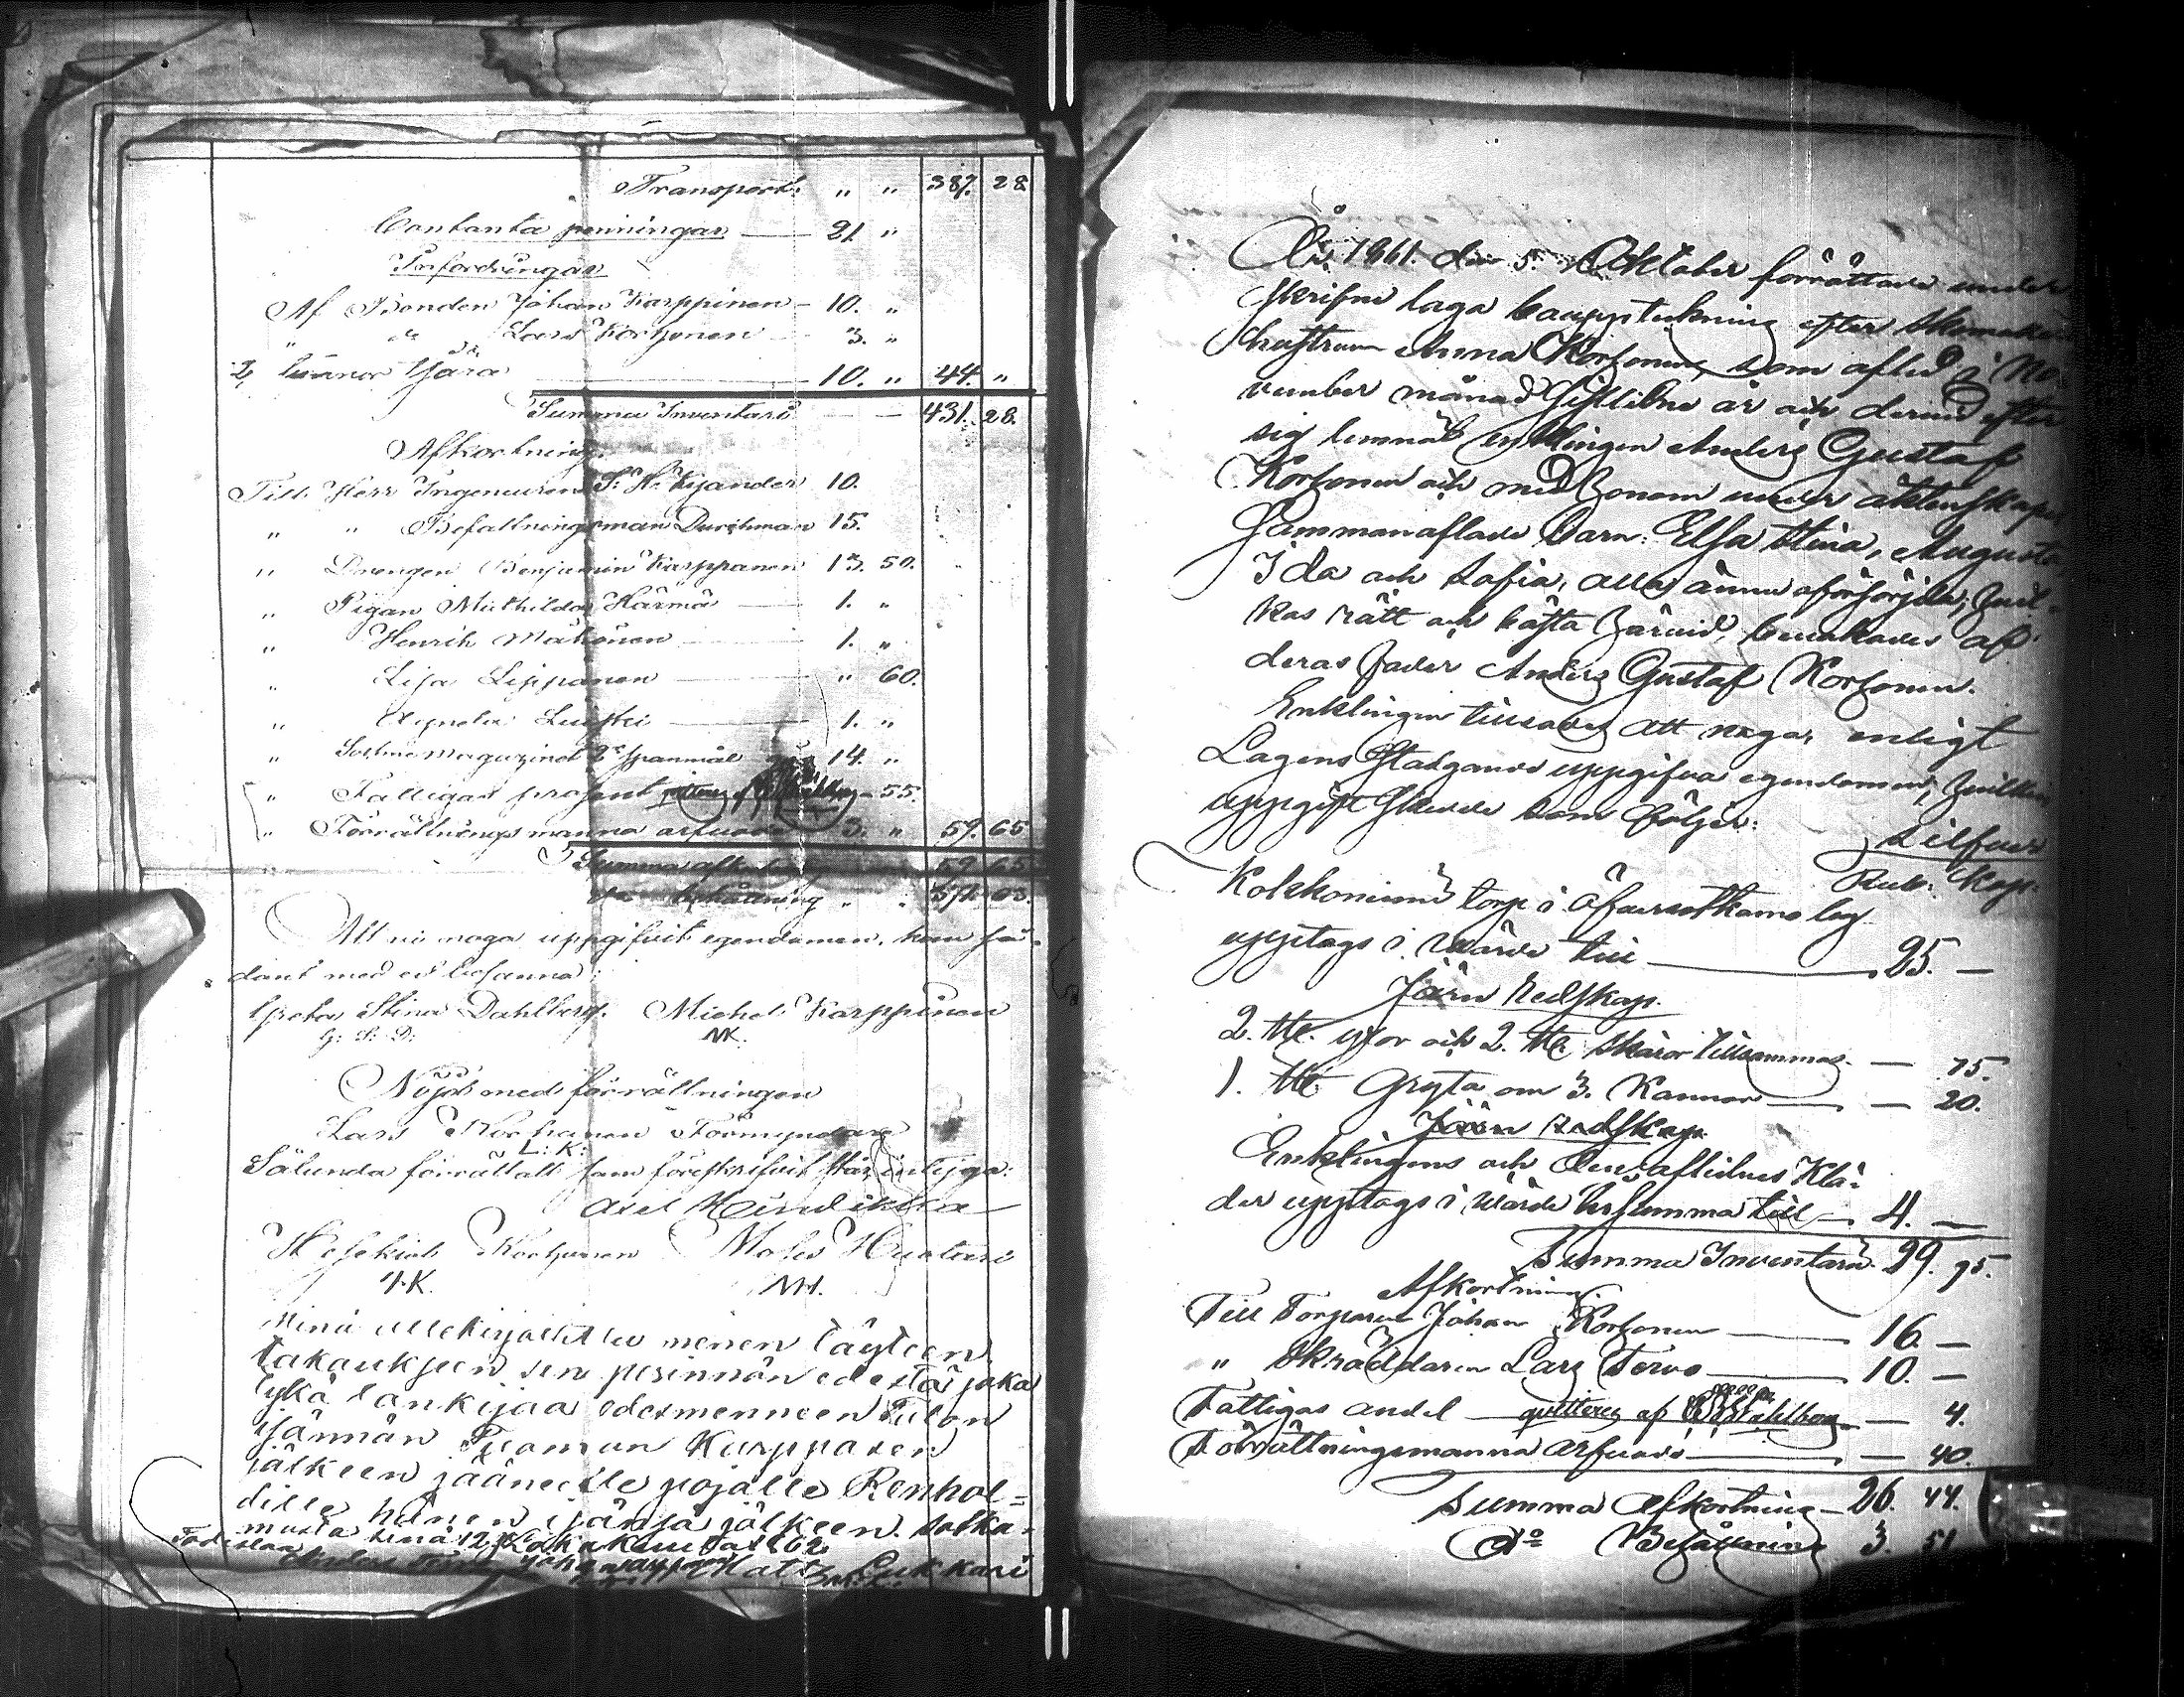 Transport: " " 387. 28
Contanta penningar — 21. "
Infordringar
Af Bonden Johan Karppinen - 10. "
" do Lars Korhonen — 3. "
2, tunnor tjära — 10. " 44. "
Summa Inventarii — — 431. 28.
Afkortning.
Till Herr Ingenieuren S: H: Kjander 10.
" " Befallningsman Durchman 15.
" Drengen Benjamin Karppanen 13. 50.
" Pigan Mathilda Härmä — 1. "
" Henrik Mähönen — 1. "
" Lisa Leppänen — " 60.
" Agneta — 1. "
" Sockne magazinet spanmål 14. "
" Fattigas procent — 55.
" Förrättningsmanna arfvode 3. " 59. 65
Summa afkortning 59 65
do behållning " " 371. 63.
Att så noga uppgifvit egendomen, kan så-
dant med ed besanna:
Greta Stina Dahlberg. Michel Karppinen
G: S: D: MK.
Nöjd med förrättningen
Lars Korhonen Förmyndare
L: K:
Sålunda förrättatt som föreskrifvit står, intyga:
Axel
Hesekiel Korhonen Moses Huotari
H.K. M.H.
Minä allekirjoitettu menen täyteen
takaukseen sen perinnön edestä joka
lankijaa edesmenneen Talon
isännän Tuomun Karppasen
jälkeen jääneelle pojalle Renhol=
dille hänen isänsä jälkeen. Sotka-
musta 12 p Lokakuuta 1862
Todistaa Matts Lukkari
År 1861. den 5. Oktober förrättade under
skrifne laga bouppteckning efter skomakare
hustrun Anna Korhonen, som afled i No
vember månad sistlidne år och dervid efter
sig lemnat enklingen Anders Gustaf
Korhonen och med honom under äktenskapet
sammanaflade barn: Elsa Stina, Augusta
Ida och Sofia, alla ännu oförsörjda, hvil-
kas rätt och bästa härvid, bevakades af
deras fader Anders Gustaf Korhonen.
Enklingen tillsades att noga, enligt
Lagens stadgande uppgifva egendomen, hvilken
uppgift skedde som följer: Silfver
Rub: Kop:
Kokkoniemi torp i Öfversotkamo by
upptags i värde till — 25. —
Järn Redskap.
2. st. yxor och 2. st. skäror tillsammans. — 75.
1. st Gryta om 3. Kannor — — 20.
Järn Redskap
Enklingens och den aflidnes Klä-
der upptags i värde till — 4. —
Summa Inventarii 29. 95.
Afkortning.
Till Torparen Johan Korhonen — 16. —
" Skräddaren Lars Tervo — 10. —
Fattigas andel — qvitteras af — 4.
Förrättningsmanna arfvode — — 40.
Summa Afkortning — 26. 44.
do Behållning 3. 51